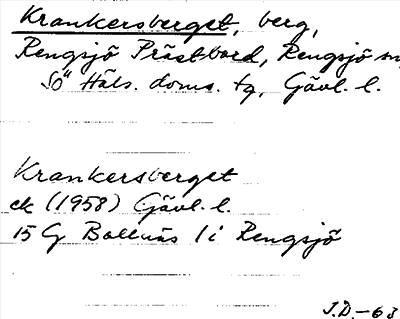 Krankersberget, berg,
Rengsjö Prästbord, Rengsjö sn,
SÖ Häls. doms. tg, Gävl. l.
Krankersberget
ek (1958) Gävl. l.
15 G Bollnäs 1 i Rengsjö
J.D.-63